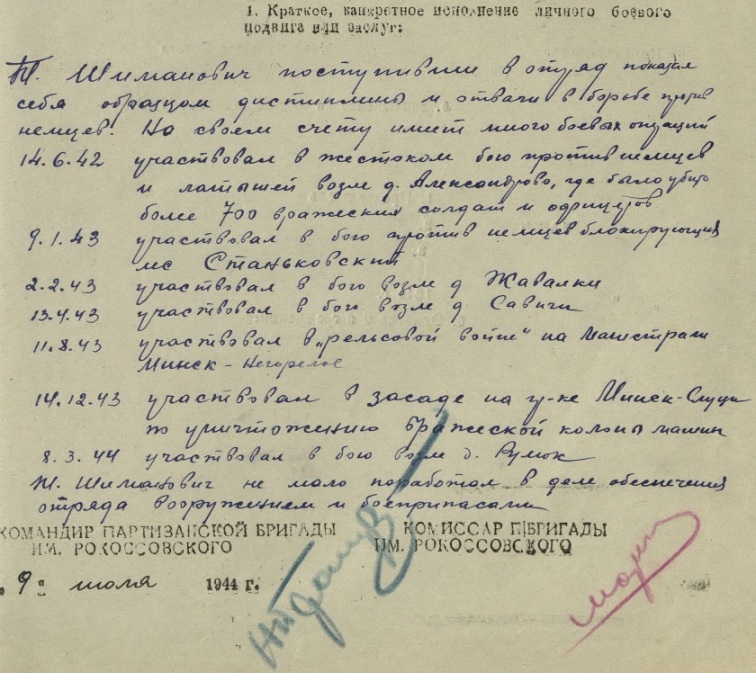 1. Краткое, конкретное исполнение личного боевого
подвига или заслуг:
Т. Шиманович поступивши в отряд показал
себя образцом дистиплины и отваги в борьбе против
немцев. На своем счету имеет много боевых операций
14.6.42 участвовал в жестоком бою против немцев
и латышей возле д. Александрово, где было убито
более 700 вражеских солдат и офицеров
9.1.43 участвовал в бою против немцев блокирующих
лес Станьковский
2.2.43 участвовал в бою возле д Жавалки
13.4.43 участвовал в бою возле д Савичи
11.8.43 участвовал в „рельсовой войне" на магистрали
Минск-Негорелое
14.12.43 участвовал в засаде на Минск-Слуцк
по уничтожению вражеской колоны машин
8.3.44 участвовал в бою возле д. Румок
Шиманович не мало поработал в деле обеспечения
отряда вооружением и боеприпасами
КОМАНДИР ПАРТИЗАНСКОЙ БРИГАДЫ КОМИССАР П/БРИГАДЫ
ИМ. РОКОССОВСКОГО ИМ. РОКОССОВСКОГО
9 июля 1944 г.